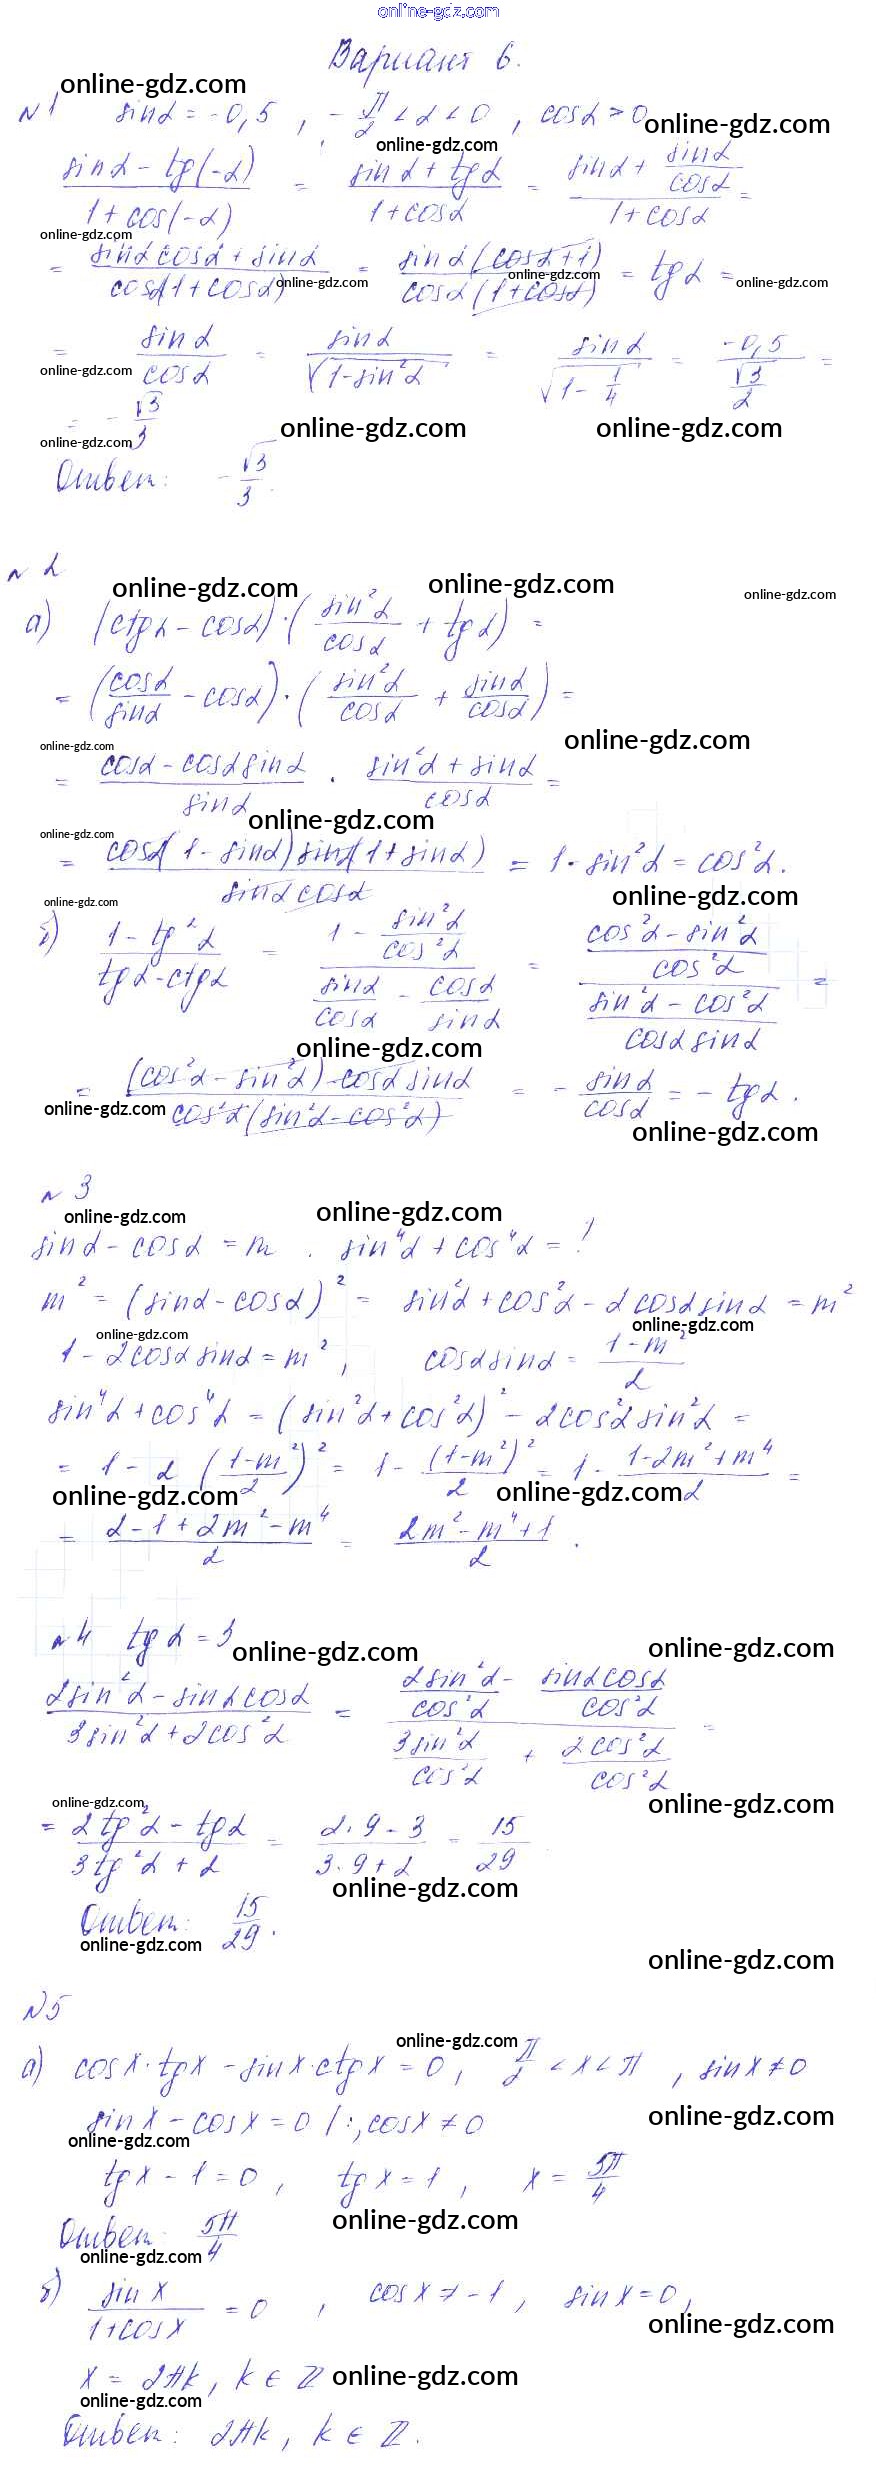 online-gdz.com
Вариант 6.
online-gdz.com
№ 1 sin α = -0,5 , -π/2 < α < 0 , cos α > 0
online-gdz.com
online-gdz.com
(sin α - tg(-α))/(1 + cos(-α)) = (sin α + tg α)/(1 + cos α) = (sin α + sin α/cos α)/(1 + cos α) =
online-gdz.com
= (sin α cos α + sin α)/(cos α(1 + cos α)) = (sin α (cos α + 1))/(cos α (1 + cos α)) = tg α =
online-gdz.com
online-gdz.com
online-gdz.com
= sin α/cos α = sin α/√(1 - sin² α) = sin α/√(1 - 1/4) = -0,5/(√3/2) =
online-gdz.com
= -√3/3
online-gdz.com
online-gdz.com
online-gdz.com
Ответ: -√3/3.
№ 2
online-gdz.com
online-gdz.com
online-gdz.com
а) (ctg α - cos α) · (sin² α/cos α + tg α) =
= (cos α/sin α - cos α) · (sin² α/cos α + sin α/cos α) =
online-gdz.com
online-gdz.com
= (cos α - cos α sin α)/sin α · (sin² α + sin α)/cos α =
online-gdz.com
online-gdz.com
= (cos α(1 - sin α) sin α(1 + sin α))/(sin α cos α) = 1 - sin² α = cos² α.
online-gdz.com
online-gdz.com
б) (1 - tg² α)/(tg α - ctg α) = (1 - sin² α/cos² α)/(sin α/cos α - cos α/sin α) = ((cos² α - sin² α)/cos² α)/((sin² α - cos² α)/(cos α sin α)) =
online-gdz.com
= ((cos² α - sin² α) · cos α sin α)/(cos² α (sin² α - cos² α)) = - sin α/cos α = - tg α.
online-gdz.com
online-gdz.com
№ 3
online-gdz.com
online-gdz.com
sin α - cos α = m . sin⁴ α + cos⁴ α = ?
m² = (sin α - cos α)² = sin² α + cos² α - 2 cos α sin α = m²
online-gdz.com
online-gdz.com
1 - 2 cos α sin α = m² , cos α sin α = (1 - m²)/2
sin⁴ α + cos⁴ α = (sin² α + cos² α)² - 2 cos² α sin² α =
= 1 - 2 ((1 - m²)/2)² = 1 - (1 - m²)²/2 = 1 - (1 - 2m² + m⁴)/2 =
online-gdz.com
online-gdz.com
= (2 - 1 + 2m² - m⁴)/2 = (2m² - m⁴ + 1)/2 .
№ 4 tg α = 3
online-gdz.com
online-gdz.com
(2 sin² α - sin α cos α)/(3 sin² α + 2 cos² α) = (2 sin² α/cos² α - sin α cos α/cos² α)/(3 sin² α/cos² α + 2 cos² α/cos² α) =
online-gdz.com
online-gdz.com
= (2 tg² α - tg α)/(3 tg² α + 2) = (2 · 9 - 3)/(3 · 9 + 2) = 15/29
online-gdz.com
Ответ: 15/29.
online-gdz.com
online-gdz.com
№ 5
online-gdz.com
а) cos x · tg x - sin x · ctg x = 0 , π/2 < x < π , sin x ≠ 0
sin x - cos x = 0 /:, cos x ≠ 0
online-gdz.com
online-gdz.com
tg x - 1 = 0 , tg x = 1 , x = 5π/4
Ответ: 5π/4
online-gdz.com
online-gdz.com
б) sin x/(1 + cos x) = 0 , cos x ≠ -1 , sin x = 0 ,
online-gdz.com
x = 2πk , k ∈ Z
online-gdz.com
online-gdz.com
Ответ: 2πk , k ∈ Z.